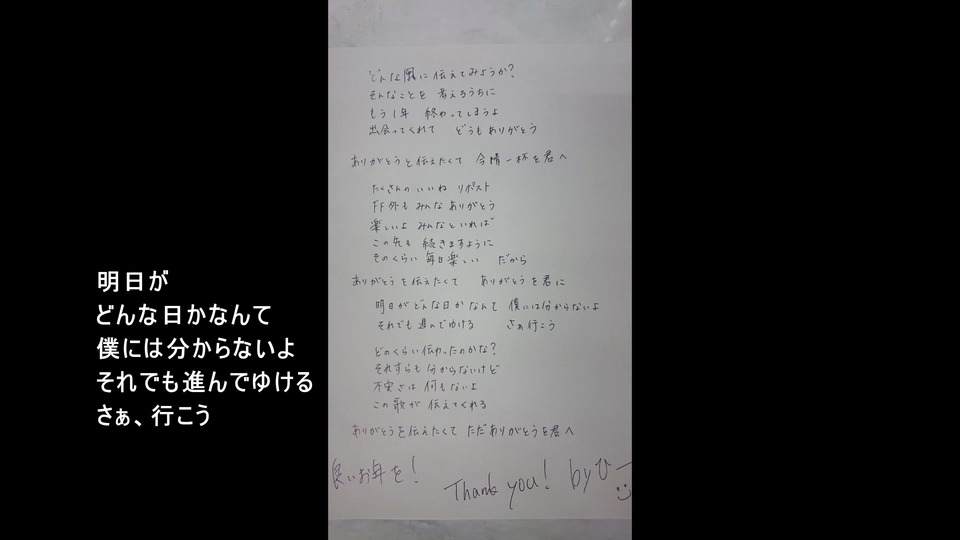 明日が
どんな日かなんて
僕には分からないよ
それでも進んでゆける
さぁ、行こう
どんな風に伝えてみようか?
そんなことを 考えるうちに
もう1年 終わってしまうよ
出会ってくれて どうもありがとう
ありがとうと伝えたくて 今晴一杯を君へ
たくさんのいいね リポスト
FF外も みんなありがとう
楽しいよ みんなといれば
この先も 続きますように
そのくらい 毎日楽しい だから
ありがとうを伝えたくて ありがとうを君に
明日がどんな日か なんて 僕には分からないよ
それでも進んでゆける さぁ行こう
どのくらい伝わったのかな?
それすらも 分からないけど
不安さは 何もないよ
この歌が 伝えてくれる
ありがとうを伝えたくて ただありがとうを君へ
良いお年を!
Thank you! by ひー